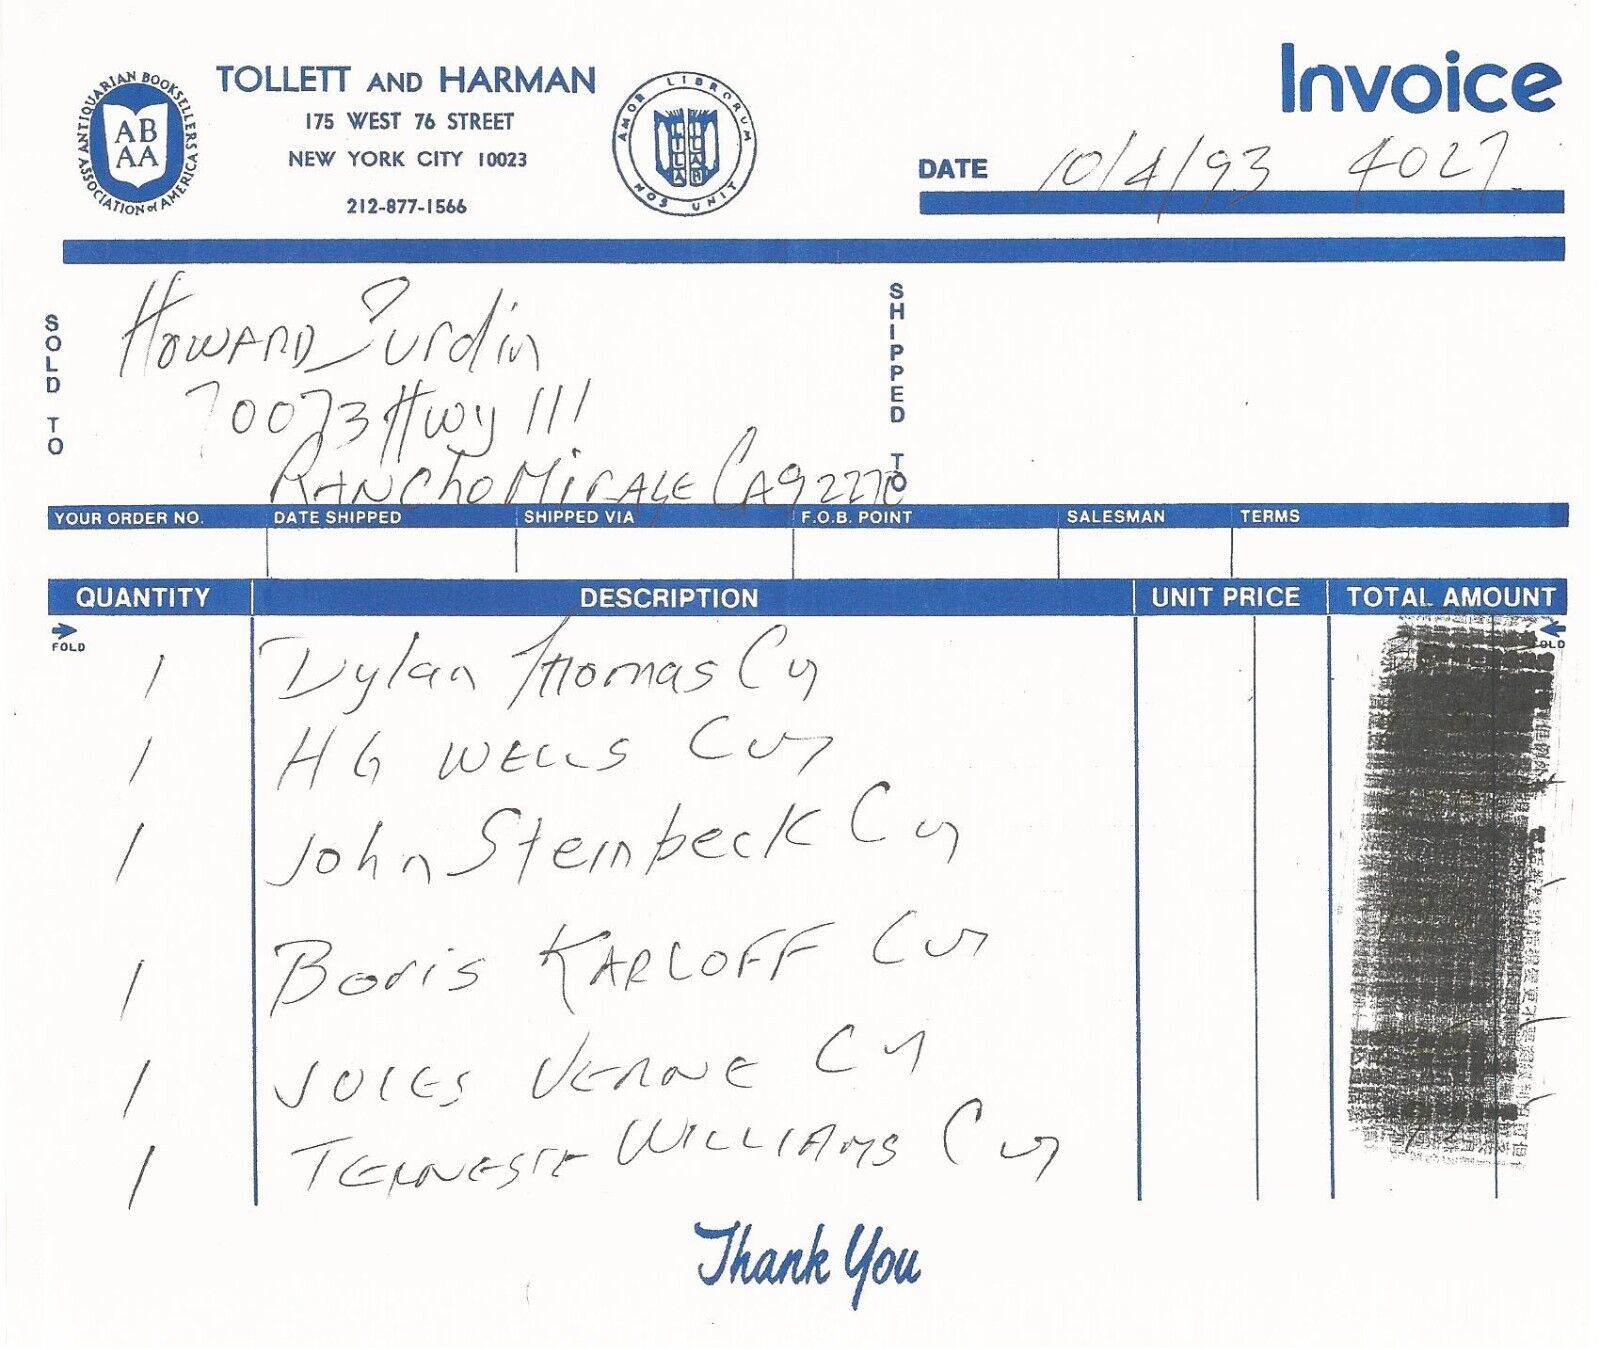 ANTIQUARIAN BOOKSELLERS' ASSOCIATION of AMERICA
AB
AA
TOLLETT AND HARMAN
175 WEST 76 STREET
NEW YORK CITY 10023
212-877-1566
AMOR LIBRORUM NOS UNIT
Invoice
DATE 10/4/93 4027
SOLD TO
HOWARD
70073 Hwy 111
RANCHO MIRAGE CA 92270
SHIPPED TO
YOUR ORDER NO. DATE SHIPPED SHIPPED VIA F.O.B. POINT SALESMAN TERMS
QUANTITY DESCRIPTION UNIT PRICE TOTAL AMOUNT
FOLD
1 Dylan Thomas
1 H G WELLS
1 John Steinbeck
1 Boris KARLOFF
1 JULES VERNE
1 TENNESSEE WILLIAMS
Thank You